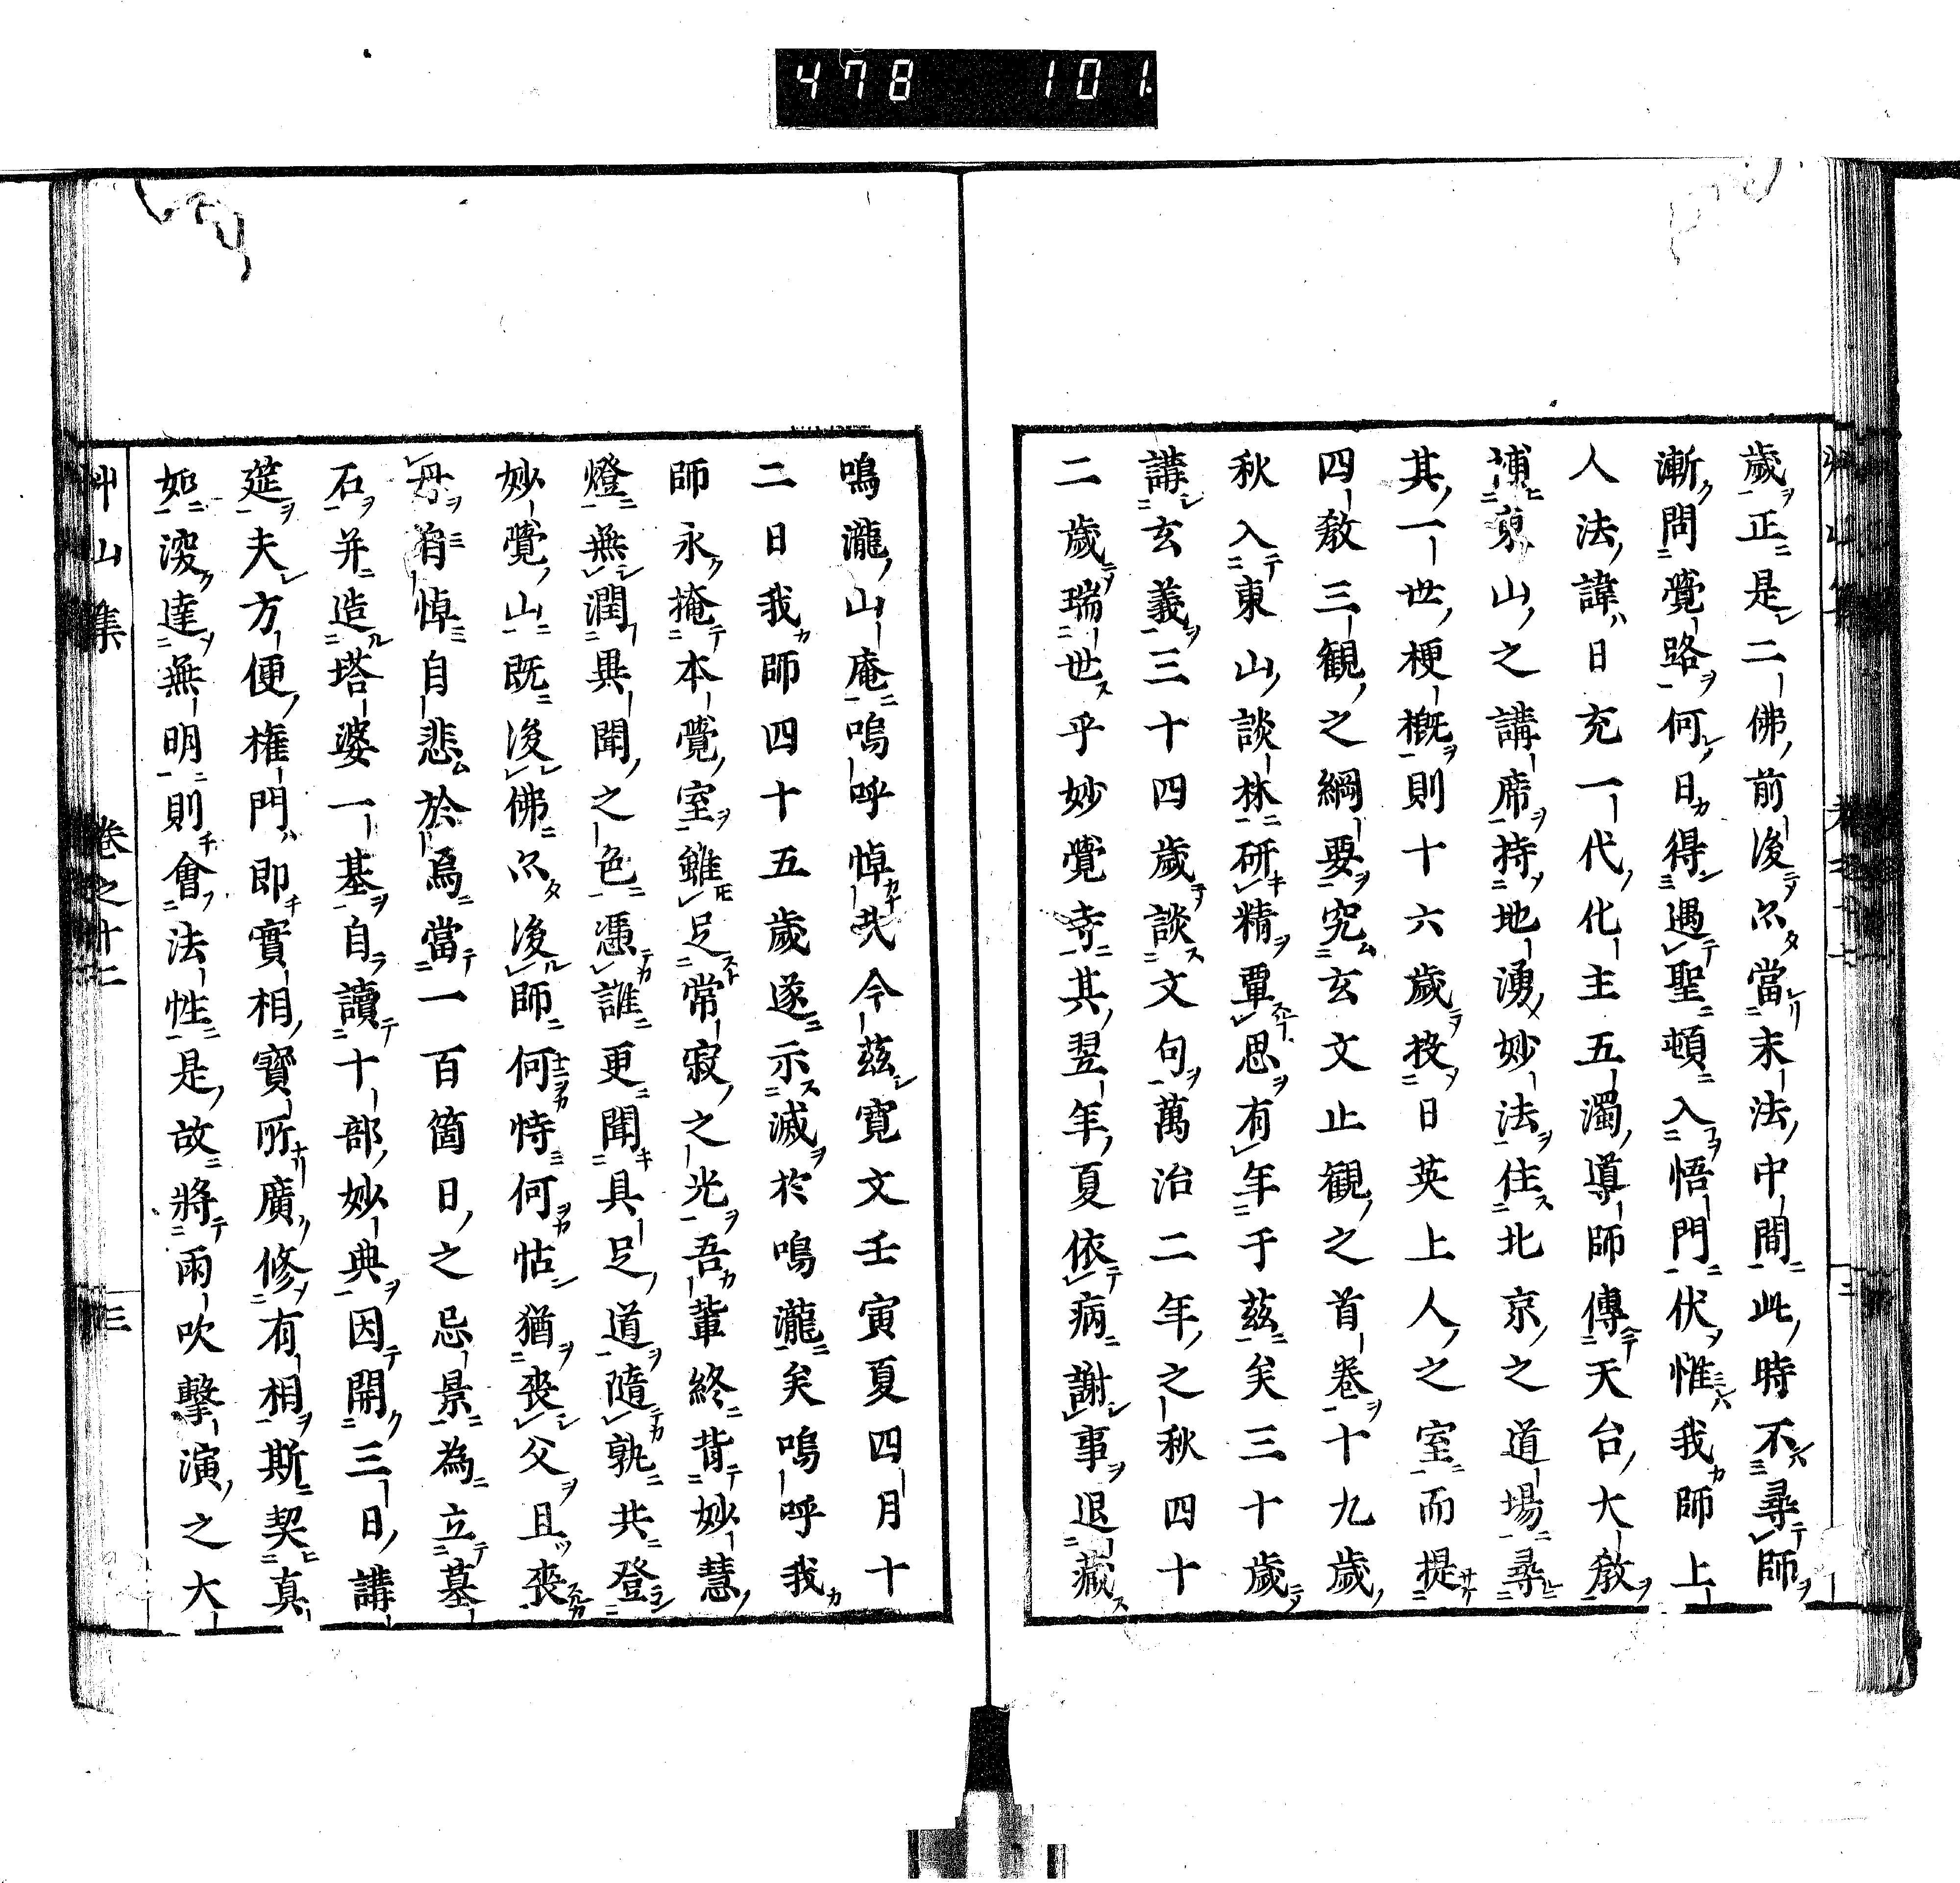 478 101.
歲正是二佛前後尒當末法中間此時不尋師
漸問覺路何日得遇聖頓入悟門伏惟我師上
人法諱日充一代化主五濁導師傳天台大教
東山之講席持地湧妙法住北京之道場尋
其一世梗概則十六歲投日英上人之室而提
四教三觀之綱要究玄文止觀之首卷十九歲
秋入東山談林研精覃思有年于茲矣三十歲
講玄義三十四歲談文句萬治二年之秋四十
二歲瑞世乎妙覺寺其翌年夏依病謝事退藏
鳴瀧山庵嗚呼悼哉今茲寬文壬寅夏四月十
二日我師四十五歲遂示滅於鳴瀧矣嗚呼我
師永掩本覺室雖足常寂之光吾輩終背妙慧
燈無潤異聞之色憑誰更聞具足道隨孰共登
妙覺山既後佛尒後師何恃何怙猶喪父且喪
母自悼自悲於焉當一百箇日之忌景為立墓
石并造塔婆一基自讀十部妙典因開三日講
筵夫方便權門即實相寶所廣修有相斯契真
如深達無明則會法性是故將雨吹擊演之大
艸山集 卷之十二 三